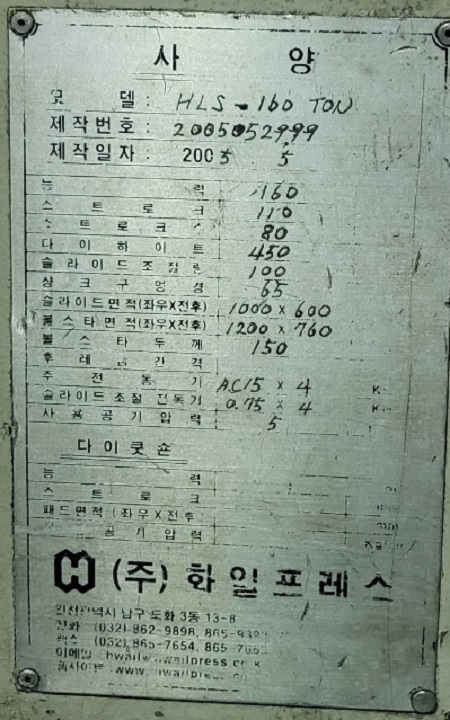 사 양
모 델 : HLS - 160 TON
제작번호 : 2005052999
제작일자 : 2005 5
능 력 160
스 트 로 크 110
스 트 로 크 스 80
다 이 하 이 트 450
슬 라 이 드 조 절 량 100
샹 크 구 멍 경 65
슬라이드면적(좌우X전후) 1000 x 600
볼스타면적(좌우X전후) 1200 x 760
볼 스 타 두 께 150
후 레 임 간 격
주 전 동 기 AC15 x 4 K
슬라이드 조절 전동기 0.75 x 4 K
사 용 공 기 압 력 5
다 이 쿳 숀
능 력
스 트 로 크
패드면적 (좌우X전후
공 기 압 력
(주) 화 일 프 레 스
인천광역시 남구 도화 3동 13-8
전화 (032) 862-9898, 865-
팩스 (032) 865-7654, 865-
이메일
홈사이트 www.